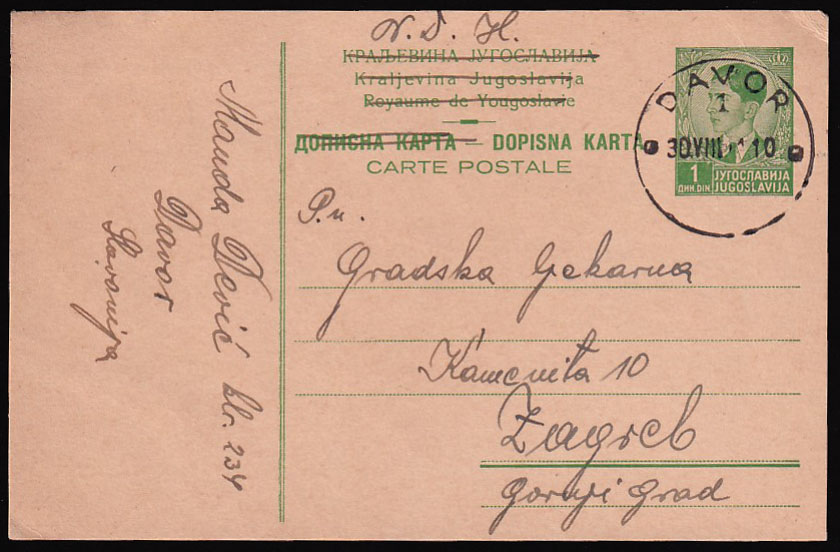 N. D. H.
КРАЉЕВИНА ЈУГОСЛАВИЈА
Kraljevina Jugoslavija
Royaume de Yougoslavie
ДОПИСНА КАРТА — DOPISNA KARTA
CARTE POSTALE
DAVOR
1
30.VIII 10
1 ЈУГОСЛАВИЈА
ДИН. DIN JUGOSLAVIJA
P. n.
Gradska Ljekarna
Kamenita 10
Zagreb
Gornji Grad
Manda Dević
kbr. 234
Davor
Slavonija